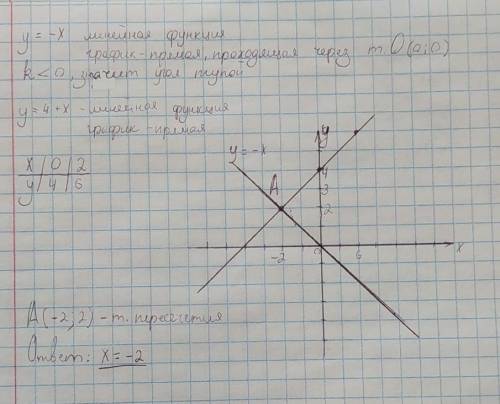 y = -x линейная функция
график - прямая, проходящая через т. O(0;0)
k < 0, значит угол тупой
y = 4+x - линейная функция
график - прямая
x | 0 | 2
y | 4 | 6
y = -x
y
A
4
3
2
-2
0
6
x
A(-2;2) - т. пересечения
Ответ: x = -2